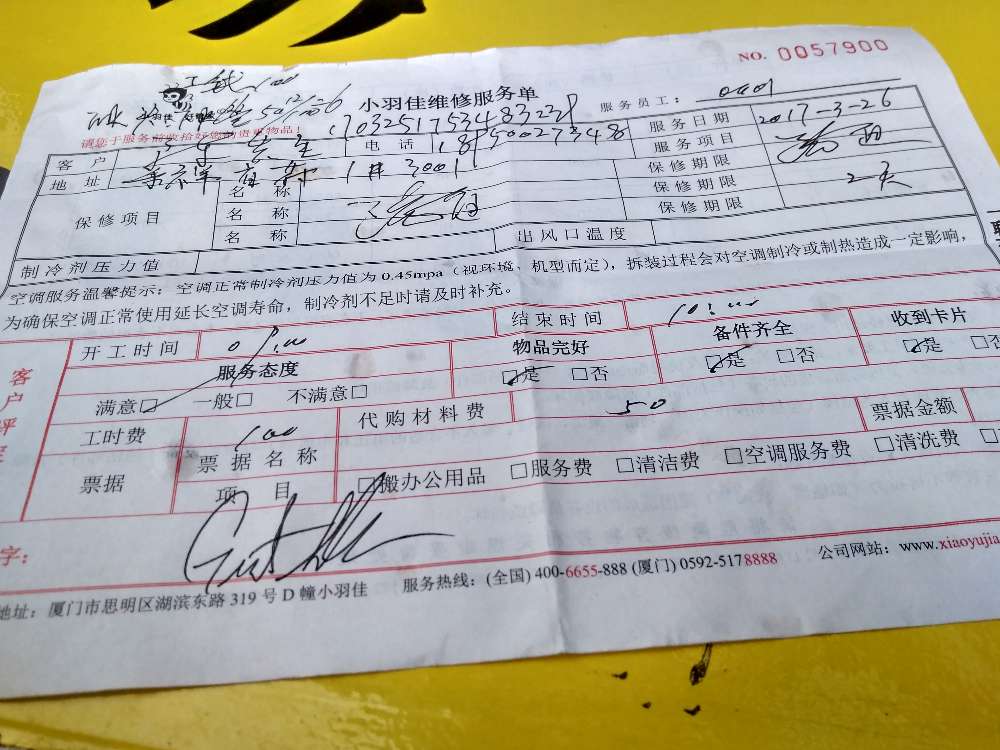 NO. 0057900
工钱100
小羽佳维修服务单
服务员工：
请您于服务前收拾好您的贵重物品！
170325175348323
客户
电话
18950027348
服务日期
2017-3-26
地址
1# 3001
服务项目
保修项目
名称
保修期限
名称
保修期限
2天
名称
保修期限
制冷剂压力值
出风口温度
空调服务温馨提示：空调正常制冷剂压力值为0.45mpa（视环境、机型而定），拆装过程会对空调制冷或制热造成一定影响，
为确保空调正常使用延长空调寿命，制冷剂不足时请及时补充。
客户评定
开工时间
结束时间
10:00
服务态度
物品完好
备件齐全
收到卡片
满意☑ 一般□ 不满意□
☑是 □否
☑是 □否
☑是 □否
工时费
100
代购材料费
50
票据金额
票据
票据名称
项目
□搬办公用品 □服务费 □清洁费 □空调服务费 □清洗费
字：
地址：厦门市思明区湖滨东路319号D幢小羽佳
服务热线：(全国) 400-6655-888 (厦门) 0592-5178888
公司网站：www.xiaoyujia